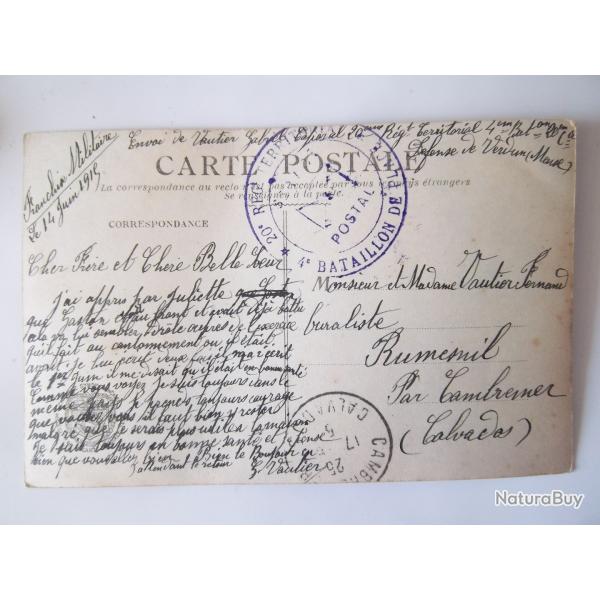 Franchise Militaire
Le 14 Juin 1915
Envoi de Vautier Caporal 20eme Régt Territorial 4em Baton
Défense de Verdun (Meuse)
CARTE POSTALE
La correspondance au recto n'est pas acceptée par tous pays étrangers
Se renseigner à la poste
20e RGT TERRIT
4e BATAILLON DE
POSTAL
CORRESPONDANCE
Cher Frère et Chère Belle Sœur
J'ai appris par Juliette
que Gaston était au front et avait déjà battu
cela va lui sembler drôle après l'exercice
qu'il fait au cantonnement ou il était
avant. Je lui
le 1er Juin il me disait qu'il était en bonne part
Comme vous voyez je suis toujours dans le
même je prends toujours courage
que voulez vous il faut bien y rester
malgré que je serais plus utile à la maison
Je suis toujours en bonne santé et je pense
bien que vous allez bien. Bien le Bonjour en
attendant le retour
G. Vautier
Monsieur et Madame Vautier Fernand
buraliste
Rumesnil
Par Cambremer
(Calvados)
CAMBREMER
CALVADOS
17
5
25
NaturaBuy